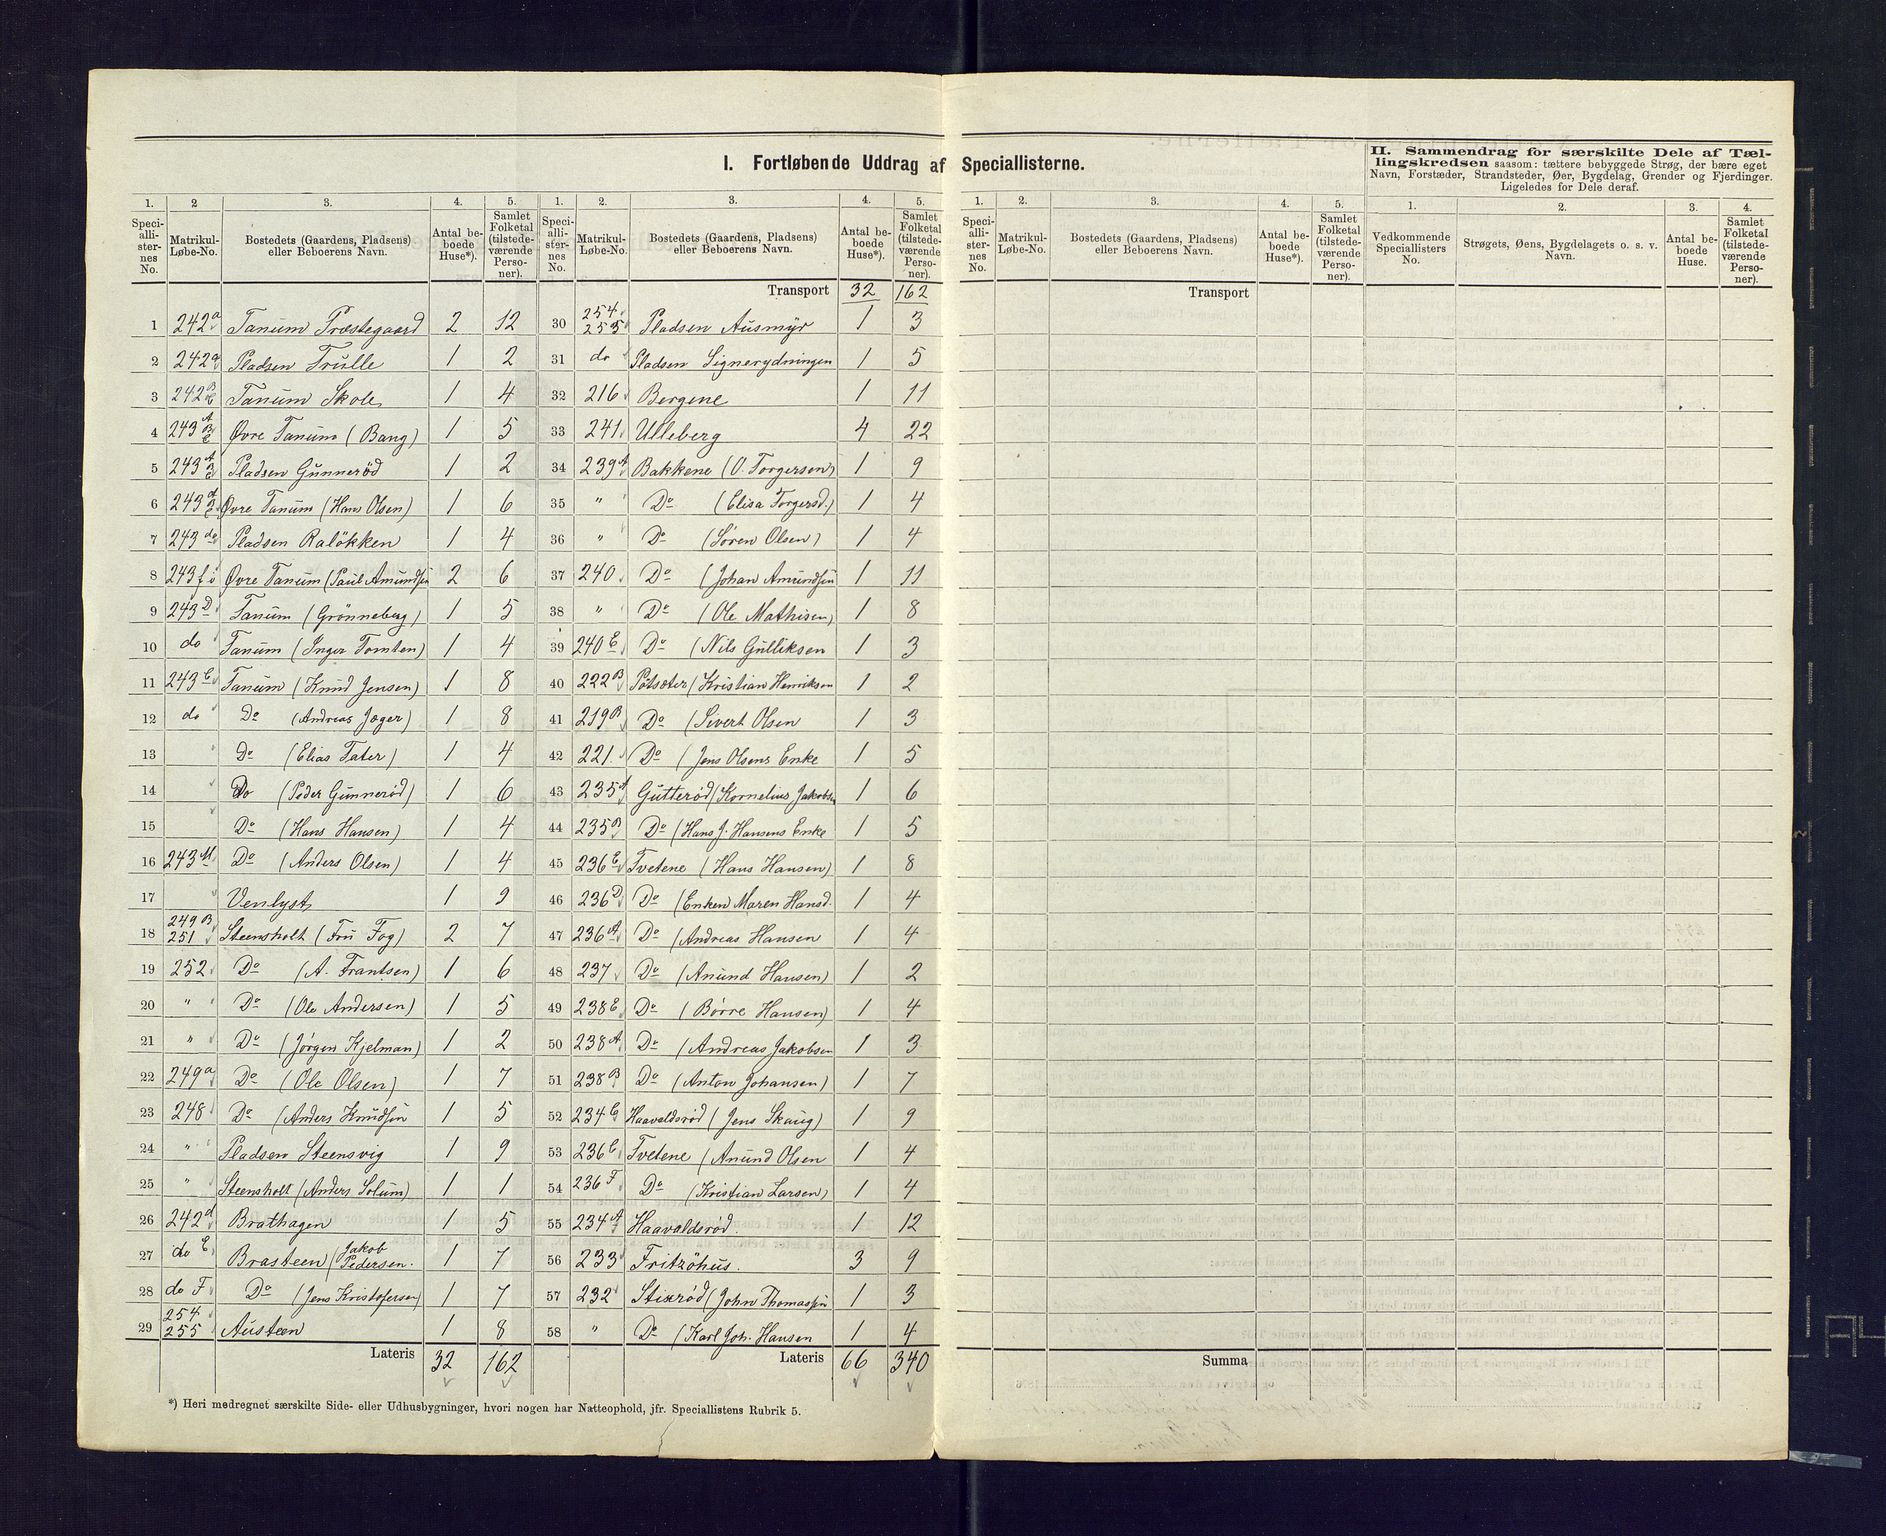 I. Fortløbende Uddrag af Speciallisterne.
II. Sammendrag for særskilte Dele af Tæl-
lingskredsen saasom: tættere bebyggede Strøg, der bære eget
Navn, Forstæder, Strandsteder, Øer, Bygdelag, Grender og Fjerdinger.
Ligeledes for Dele deraf.
1. 2 3. 4. 5.
Speci-allister-nes No. Matrikul-Løbe-No. Bostedets (Gaardens, Pladsens) eller Beboerens Navn. Antal be-boede Huse*). Samlet Folketal (tilstede-værende Perso-ner).
1 242a Tanum Præstegaard 2 12
2 242a Pladsen Trulle 1 2
3 242 Tanum Skole 1 4
4 243 Øvre Tanum (Bang) 1 5
5 243 Pladsen Gunnerød 1 2
6 243 Øvre Tanum (Hans Olsen) 1 6
7 243 do Pladsen Raløkken 1 4
8 243 f Øvre Tanum (Paul Amundsen 2 6
9 243 D Tanum (Grønneberg) 1 5
10 do Tanum (Inger Tomten) 1 4
11 243 Tanum (Knud Jensen) 1 8
12 do Do (Andreas Jæger) 1 8
13 Do (Elias Fater) 1 4
14 Do (Peder Gunnerød) 1 6
15 Do (Hans Hansen) 1 4
16 243 M Do (Anders Olsen) 1 4
17 Venlyst 1 9
18 249 B 251 Steensholt (Fru Fog) 2 7
19 252 Do (A. Frantsen) 1 6
20 " Do (Ole Andersen) 1 5
21 " Do (Jørgen Kjelman) 1 2
22 249a Do (Ole Olsen) 1 7
23 248 Do (Anders Knudsen 1 5
24 " Pladsen Steensvig 1 9
25 " Steensholt (Anders Solum) 1 1
26 242d Brathagen 1 5
27 do E Brasteen (Jakob Pedersen. 1 7
28 do F Do (Jens Kristofersen) 1 7
29 254 255 Austeen 1 8
Lateris 32 162
1. 2. 3. 4. 5.
Speci-allister-nes No. Matrikul-Løbe-No. Bostedets (Gaardens, Pladsens) eller Beboerens Navn. Antal be-boede Huse*). Samlet Folketal (tilstede-værende Perso-ner).
Transport 32 162
30 254 255 Pladsen Ausmyr 1 3
31 do Pladsen Signerydningen 1 5
32 216 Bergene 1 11
33 241 Ulleberg 4 22
34 239A Bakkene (O. Torgersen) 1 9
35 " Do (Elisa Torgersd.) 1 4
36 " Do (Søren Olsen) 1 4
37 240 Do (Johan Amundsen 1 11
38 " Do (Ole Mathisen) 1 8
39 240 E Do (Nils Gulliksen 1 3
40 222 B Pøtsæter (Kristian Henriksen 1 2
41 219 B Do (Severt Olsen 1 3
42 221. Do (Jens Olsens Enke 1 5
43 235 A Gutterød (Kornelius Jakobsen 1 6
44 235 B Do (Hans J. Hansens Enke 1 5
45 236 E Tvetene (Hans Hansen) 1 8
46 236 D Do (Enken Maren Hansd. 1 4
47 236 A Do (Andreas Hansen 1 4
48 237 Do (Anund Hansen) 1 2
49 238 E Do (Børre Hansen) 1 4
50 238 A Do (Andreas Jakobsen 1 3
51 238 B Do (Anton Johansen) 1 7
52 234 C Haavaldsrød (Jens Skaug) 1 9
53 236 C Tvetene (Anund Olsen 1 4
54 236 F Do (Kristian Larsen) 1 4
55 234 A Haavaldsrød. 1 12
56 233 Fritzöhus. 3 9
57 232 Stixrød (John Thomassen 1 3
58 " Do (Karl Joh. Hansen 1 4
Lateris 66 340
*) Heri medregnet særskilte Side- eller Udhusbygninger, hvori nogen har Natteophold, jfr. Speciallistens Rubrik 5.
1. 2. 3. 4. 5.
Speci-allister-nes No. Matrikul-Løbe-No. Bostedets (Gaardens, Pladsens) eller Beboerens Navn. Antal be-boede Huse*). Samlet Folketal (tilstede-værende Perso-ner).
Transport
Summa
1. 2. 3. 4.
Vedkommende Speciallisters No. Strøgets, Øens, Bygdelagets o. s. v. Navn. Antal be-boede Huse. Samlet Folketal (tilstede-værende Perso-ner).